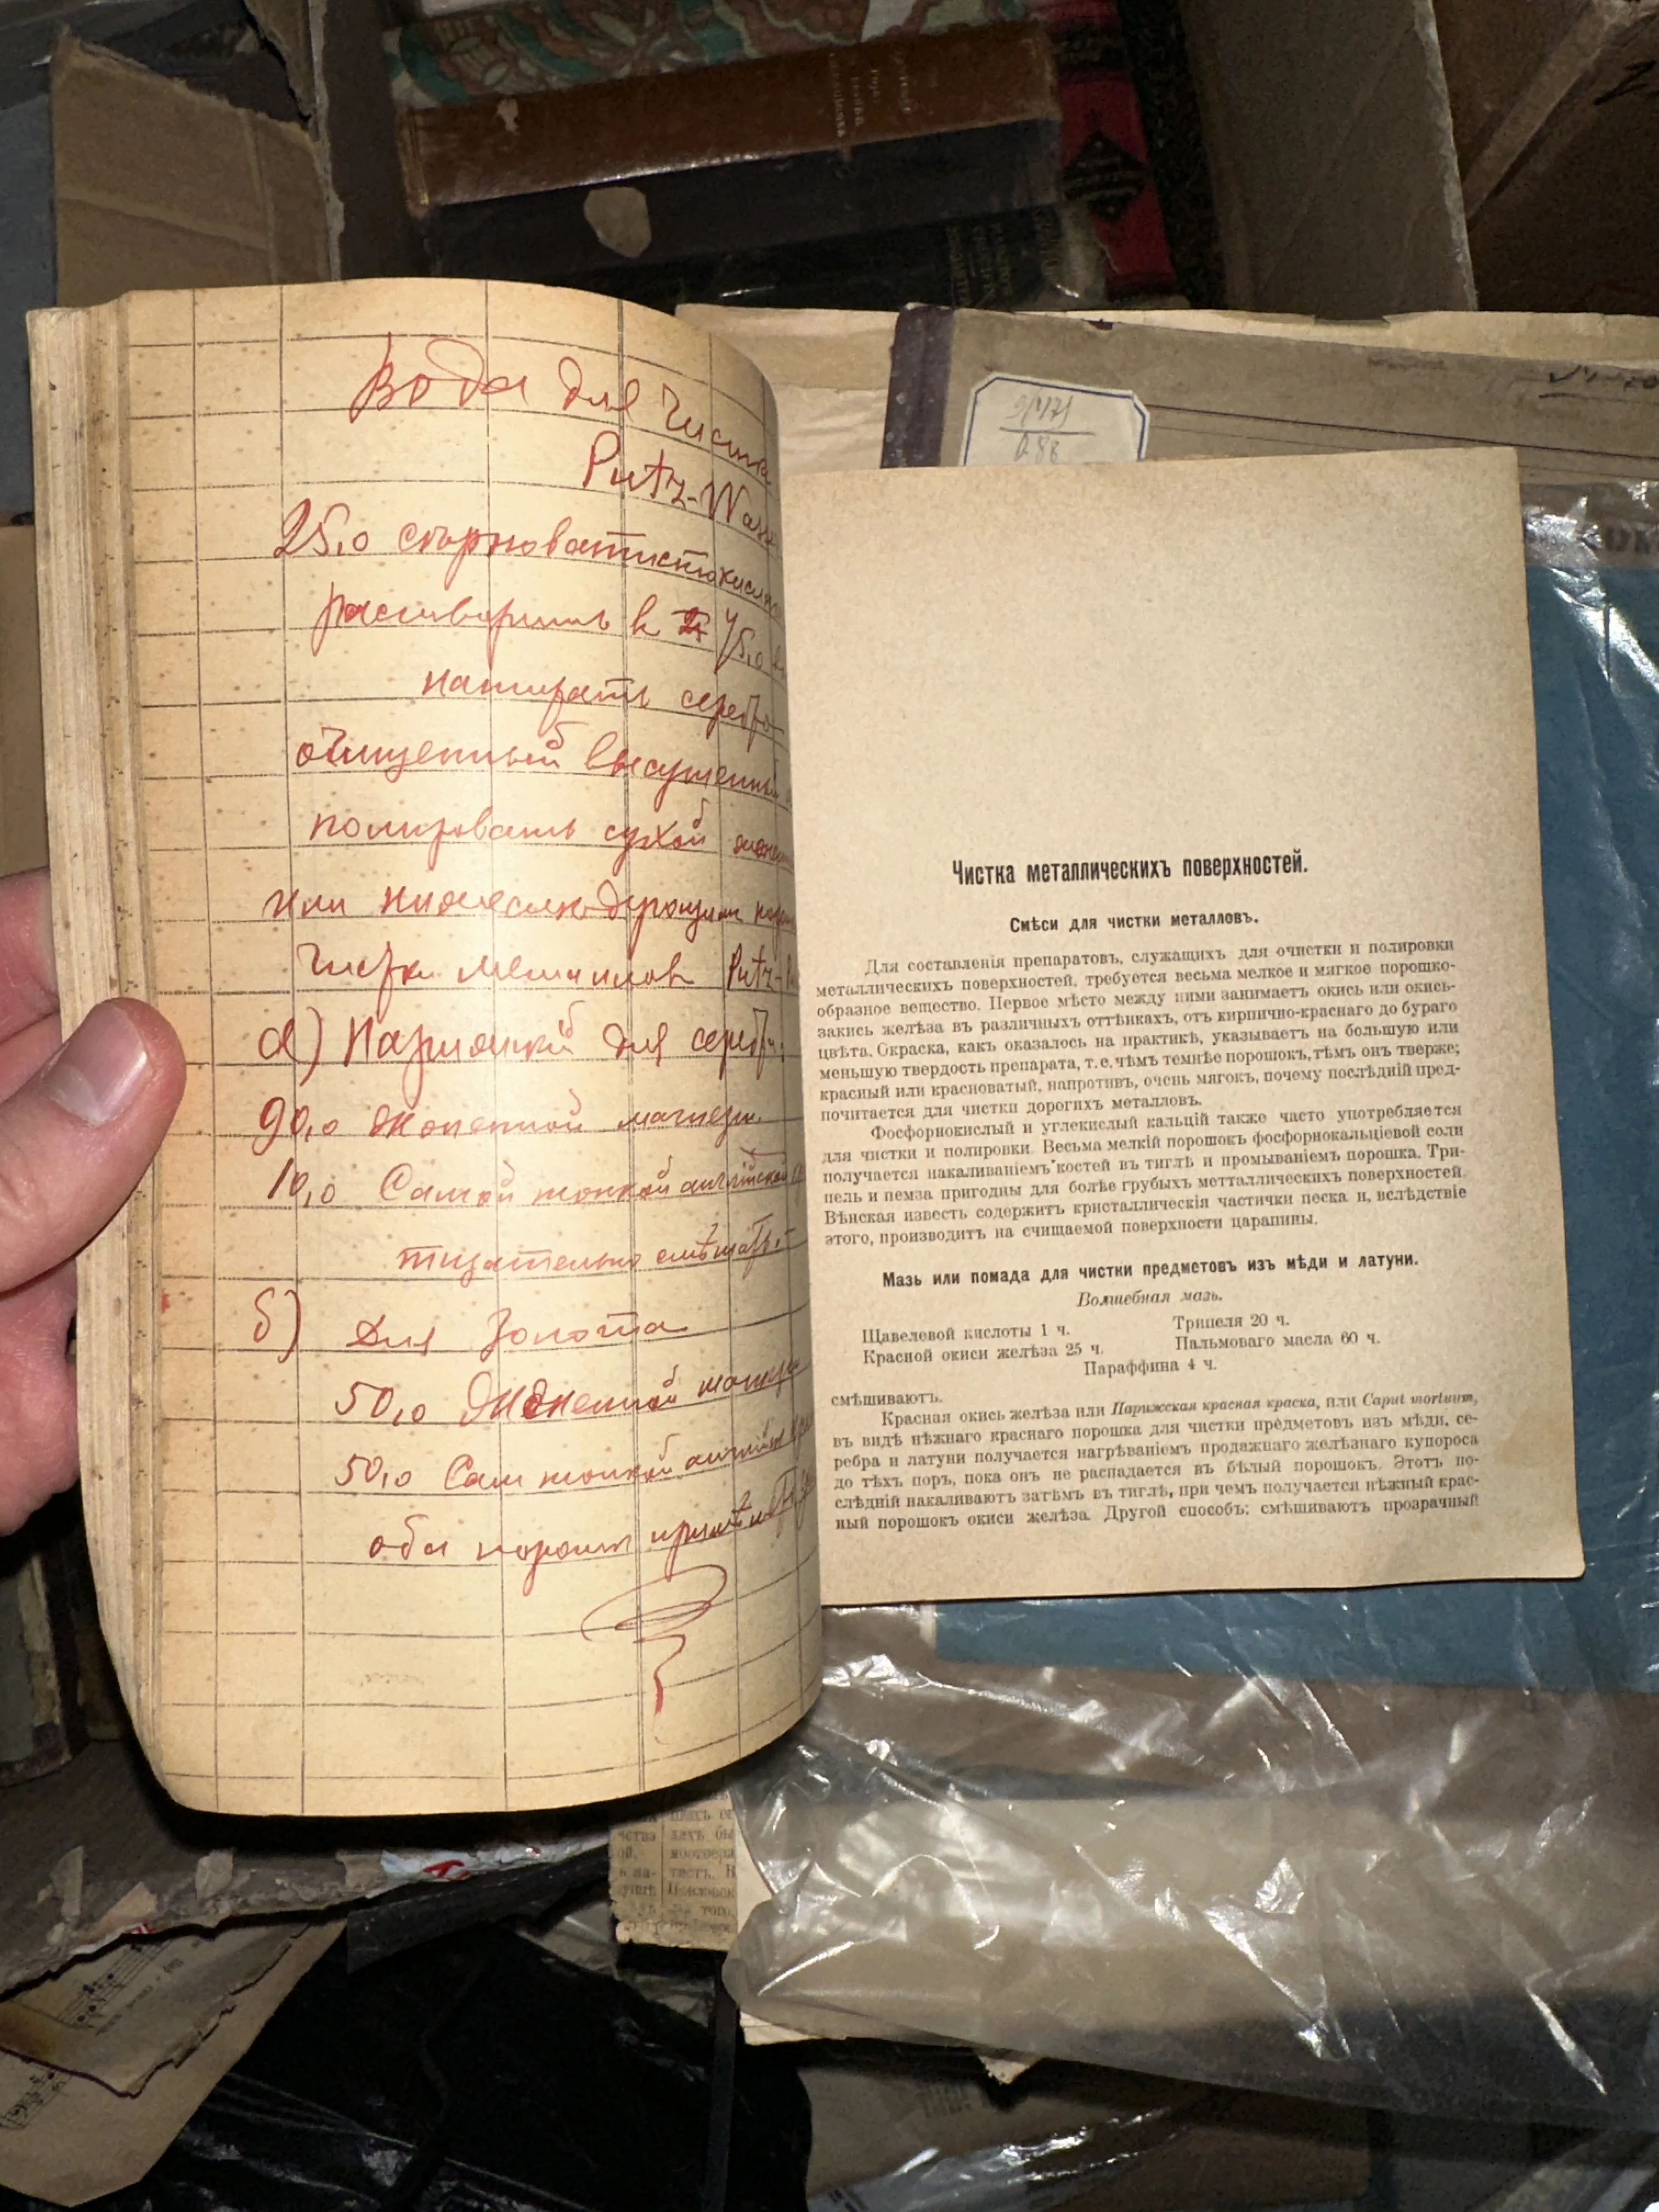 Вода для чистки
Putz-Wass
25,0 сѣрноватистокисл
растворить в 75,0
натирать серебро
очищенный высушенный
полировать сухой
или
чистки металлов Putz-
а) Порошкй для серебр.
90,0 жженной магнези
10,0 Самой тонкой английской
тщательно смѣшать.
б) Для Золота
50,0 жженной магнези
50,0 Сам тонкой английск
оба порош
Чистка металлическихъ поверхностей.
Смѣси для чистки металловъ.
Для составленія препаратовъ, служащихъ для очистки и полировки
металлическихъ поверхностей, требуется весьма мелкое и мягкое порошко-
образное вещество. Первое мѣсто между ними занимаетъ окись или окись-
закись желѣза въ различныхъ оттѣнкахъ, отъ кирпично-краснаго до бураго
цвѣта. Окраска, какъ оказалось на практикѣ, указываетъ на большую или
меньшую твердость препарата, т. е. чѣмъ темнѣе порошокъ, тѣмъ онъ тверже;
красный или красноватый, напротивъ, очень мягокъ, почему послѣдній пред-
почитается для чистки дорогихъ металловъ.
Фосфорнокислый и углекислый кальцій также часто употребляется
для чистки и полировки. Весьма мелкій порошокъ фосфорнокальціевой соли
получается накаливаніемъ костей въ тиглѣ и промываніемъ порошка. Три-
пель и пемза пригодны для болѣе грубыхъ метталлическихъ поверхностей.
Вѣнская известь содержитъ кристаллическія частички песка и, вслѣдствіе
этого, производитъ на счищаемой поверхности царапины.
Мазь или помада для чистки предметовъ изъ мѣди и латуни.
Волшебная мазь.
Щавелевой кислоты 1 ч. Трипеля 20 ч.
Красной окиси желѣза 25 ч. Пальмоваго масла 60 ч.
Параффина 4 ч.
смѣшиваютъ.
Красная окись желѣза или Парижская красная краска, или Caput mortuum,
въ видѣ нѣжнаго краснаго порошка для чистки предметовъ изъ мѣди, се-
ребра и латуни получается нагрѣваніемъ продажнаго желѣзнаго купороса
до тѣхъ поръ, пока онъ не распадается въ бѣлый порошокъ. Этотъ по-
слѣдній накаливаютъ затѣмъ въ тиглѣ, при чемъ получается нѣжный крас-
ный порошокъ окиси желѣза. Другой способъ: смѣшиваютъ прозрачный